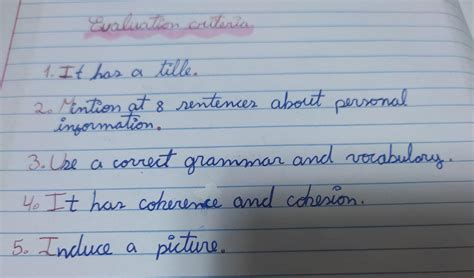 Evaluation criteria
1. It has a title.
2. Mention at 8 sentences about personal
information.
3. Use a correct grammar and vocabulary.
4. It has coherence and cohesion.
5. Induce a picture.